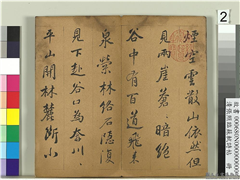 烟空云散山依然但
見兩崖蒼〻暗絕
谷中有百道飛來
泉縈林絡石隱復
見下赴谷口為奔川
平山開林麓斷小
2